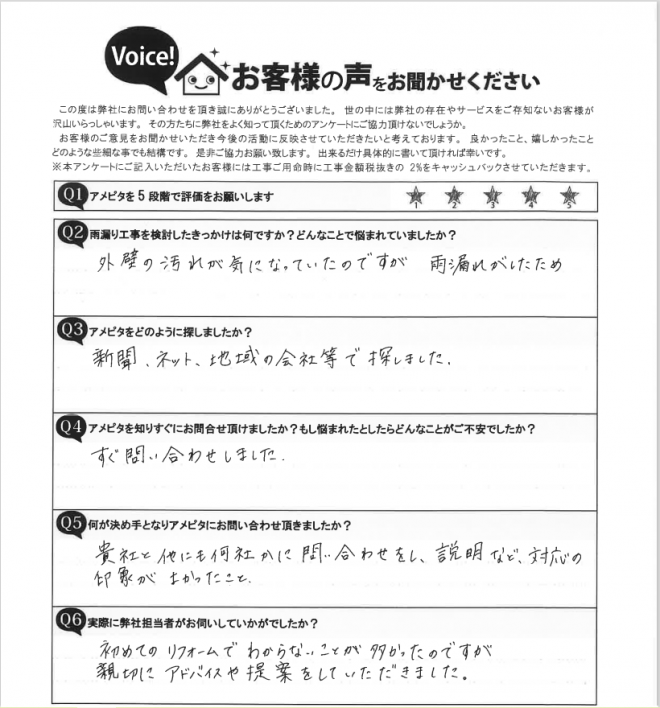 Voice!
お客様の声をお聞かせください
この度は弊社にお問い合わせを頂き誠にありがとうございました。 世の中には弊社の存在やサービスをご存知ないお客様が
沢山いらっしゃいます。 その方たちに弊社をよく知って頂くためのアンケートにご協力頂けないでしょうか。
お客様のご意見をお聞かせいただき今後の活動に反映させていただきたいと考えております。 良かったこと、嬉しかったこと
どのような些細な事でも結構です。 是非ご協力お願い致します。 出来るだけ具体的に書いて頂ければ幸いです。
※本アンケートにご記入いただいたお客様には工事ご用命時に工事金額税抜きの 2%をキャッシュバックさせていただきます。
Q1 アメピタを 5 段階で評価をお願いします
1 2 3 4 5
Q2 雨漏り工事を検討したきっかけは何ですか?どんなことで悩まれていましたか?
外壁の汚れが気になっていたのですが 雨漏れがしたため
Q3 アメピタをどのように探しましたか?
新聞、ネット、地域の会社等で探しました.
Q4 アメピタを知りすぐにお問合せ頂けましたか?もし悩まれたとしたらどんなことがご不安でしたか?
すぐ問い合わせしました.
Q5 何が決め手となりアメピタにお問い合わせ頂きましたか?
貴社と他にも何社かに問い合わせをし、説明など、対応の
印象がよかったこと.
Q6 実際に弊社担当者がお伺いしていかがでしたか?
初めてのリフォームでわからないことが多かったのですが
親切にアドバイスや提案をしていただきました。